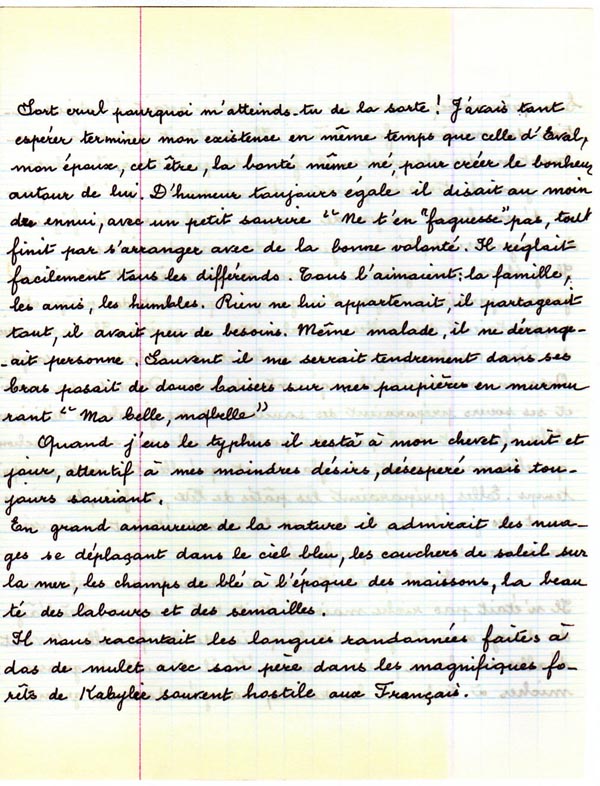 Sort cruel pourquoi m'atteinds-tu de la sorte ! J'avais tant
espérer terminer mon existence en même temps que celle d'Eval,
mon époux, cet être, la bonté même né, pour créer le bonheur
autour de lui. D'humeur toujours égale il disait au moin
dre ennui, avec un petit sourire "Ne t'en "faguesse" pas, tout
finit par s'arranger avec de la bonne volonté. Il réglait
facilement tous les différends. Tous l'aimaient : la famille,
les amis, les humbles. Rien ne lui appartenait, il partageait
tout, il avait peu de besoins. Même malade, il ne dérange-
-ait personne. Souvent il me serrait tendrement dans ses
bras posait de doux baisers sur mes paupières en murmu
rant "Ma belle, ma belle"
Quand j'eus le typhus il resta à mon chevet, nuit et
jour, attentif à mes moindres désirs, désesperé mais tou-
jours souriant.
En grand amoureux de la nature il admirait les nua-
ges se déplaçant dans le ciel bleu, les couchers de soleil sur
la mer, les champs de blé à l'époque des moissons, la beau
té des labours et des semailles.
Il nous racontait les longues randonnées faites à
dos de mulet avec son père dans les magnifiques fo-
rêts de Kabylie souvent hostile aux Français.